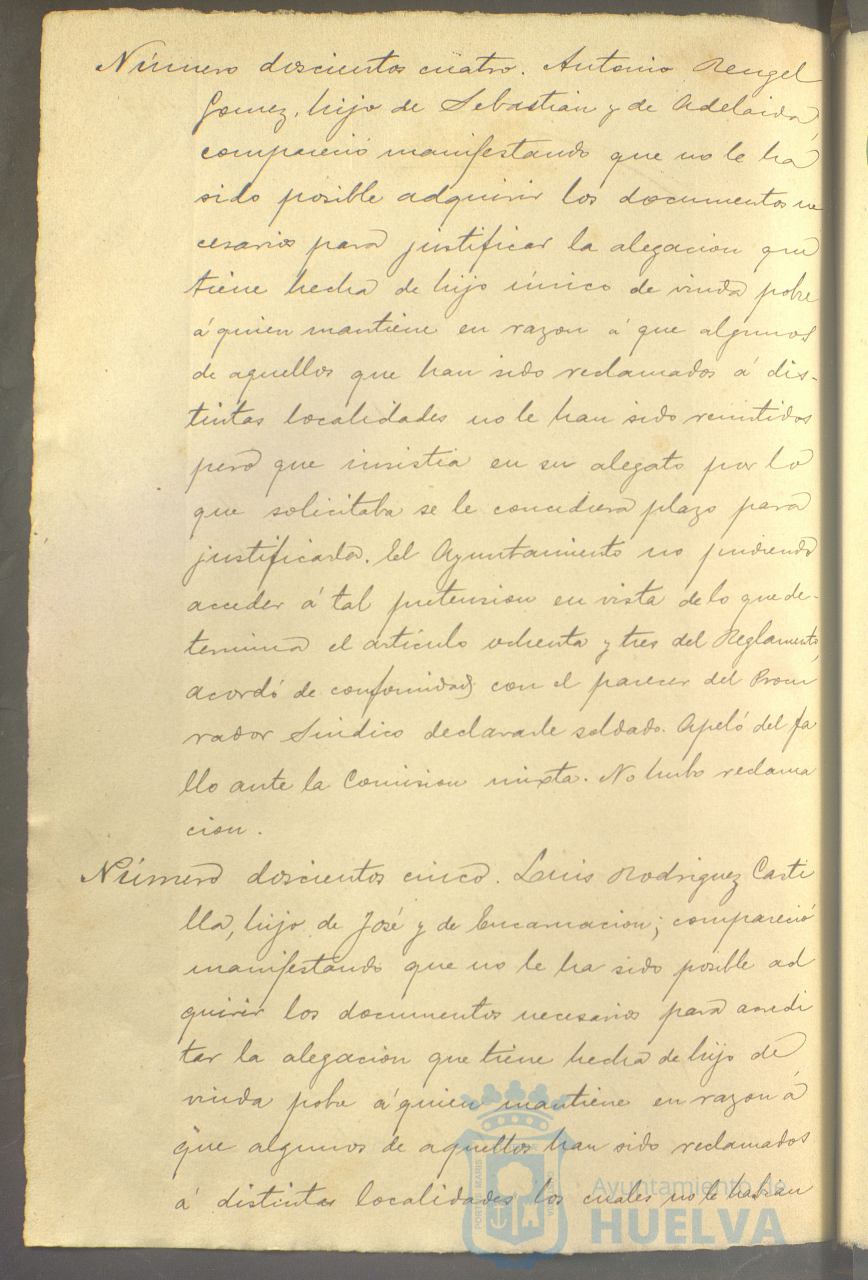 Número doscientos cuatro. Antonio Rengel
Gomez, hijo de Sebastián y de Adelaida,
compareció manifestando que no le há
sido posible adquirir los documentos ne
cesarios para justificar la alegacion que
tiene hecha de hijo único de viuda pobre
á quien mantiene en razon á que algunos
de aquellos que han sido reclamados á dis-
tintas localidades no le han sido remitidos
pero que insistia en su alegato por lo
que solicitaba se le concediera plazo para
justificarla. El Ayuntamiento no pudiendo
acceder á tal pretension en vista de lo que de-
termina el artículo ochenta y tres del Reglamento,
acordó de conformidad con el parecer del Procu
rador Síndico declararle soldado. Apeló del fa
llo ante la Comision mixta. No hubo reclama
cion.
Número doscientos cinco. Luis Rodriguez Casti
lla, hijo de José y de Encarnacion; compareció
manifestando que no le ha sido posible ad
quirir los documentos necesarios para acredi
tar la alegación que tiene hecha de hijo de
viuda pobre á quien mantiene en razon á
que algunos de aquellos han sido reclamados
á distintas localidades los cuales no le habian
Ayuntamiento de
HUELVA